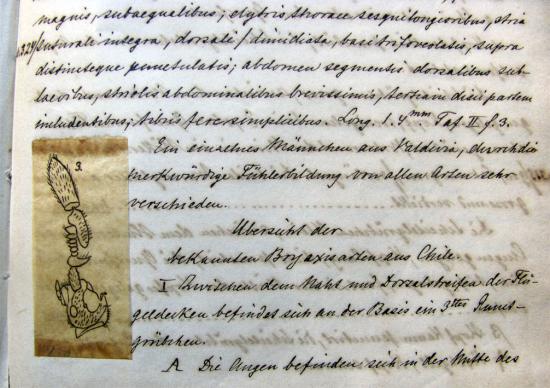 magnis, subaequalibus; elytris thorace sesquilongioribus, stria
suturali integra, dorsali dimidiata, basi trifoveolatis, supra
distincteque punctulatis; abdomen segmentis dorsalibus sub-
laevibus, striolis abdominalibus brevissimis, tertiam disci partem
includentibus; tibiis fere simplicibus. Long. 1.4 mm Taf. II f. 3.
Ein einzelnes Männchen aus Valdivia, durch die
merkwürdige Fühlerbildung von allen Arten sehr
verschieden.
3.
Übersicht der
bekannten Bryaxisarten aus Chile.
I Zwischen dem Naht und Dorsalstreifen der Flü-
geldecken befindet sich an der Basis ein 3tes Punkt-
grübchen.
A Die Augen befinden sich in der Mitte des